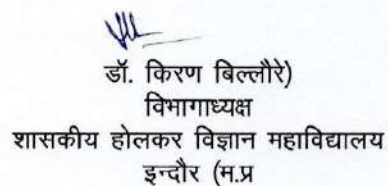 डॉ. किरण बिल्लौरे)
विभागाध्यक्ष
शासकीय होलकर विज्ञान महाविद्यालय
इन्दौर (म.प्र